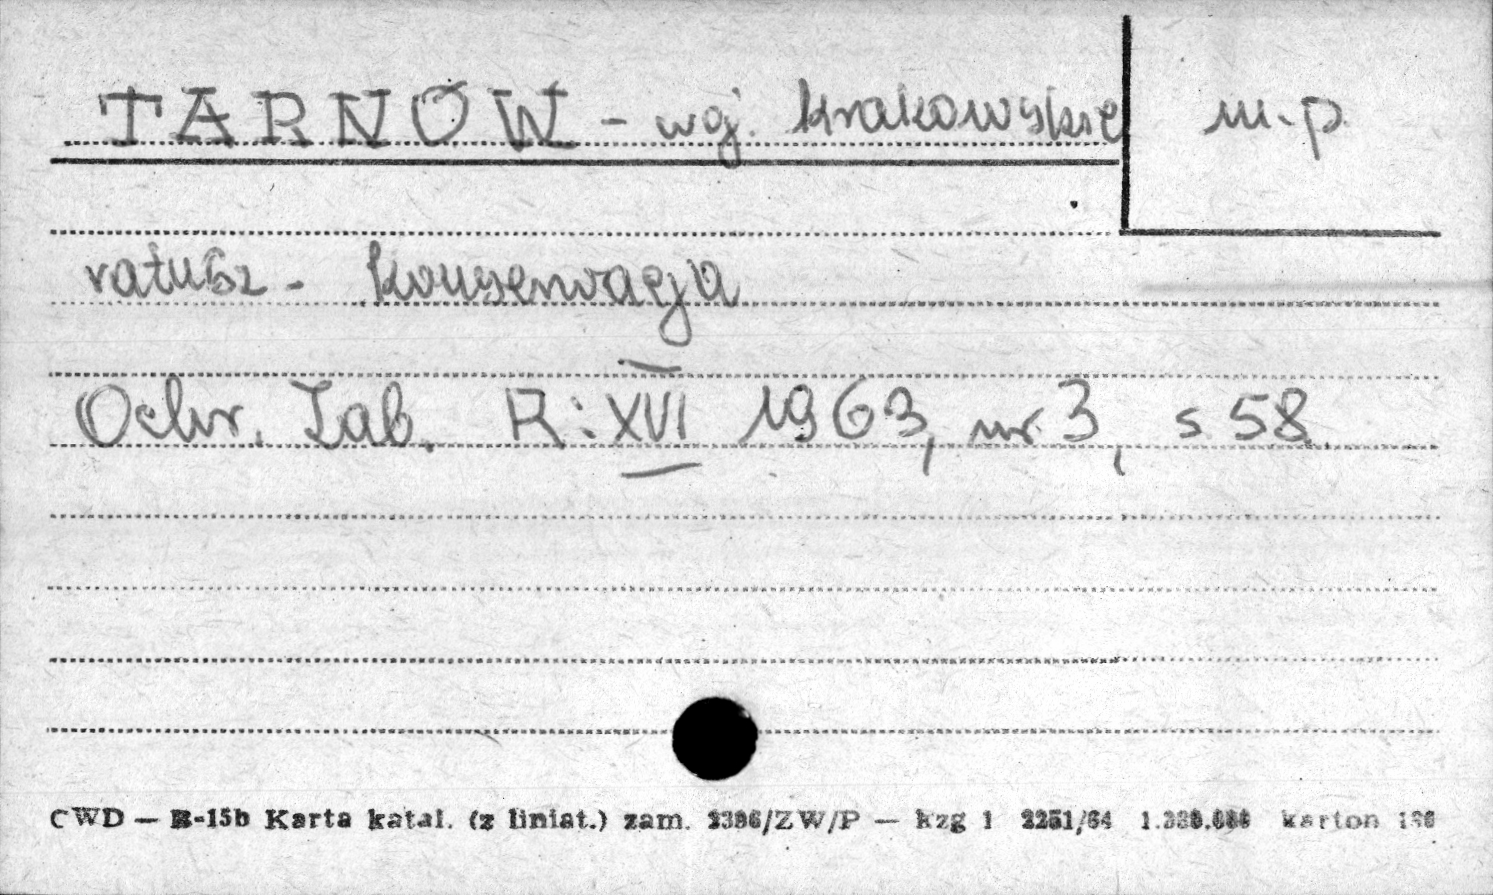 TARNÓW - woj. krakowskie
m-p
ratusz - konserwacja
Ochr. Zab. R: XVI 1963, nr 3, s 58.
CWD — R-15b Karta katal. (z liniat.) zam. 2396/ZW/P — kzg 1 2251/64 karton